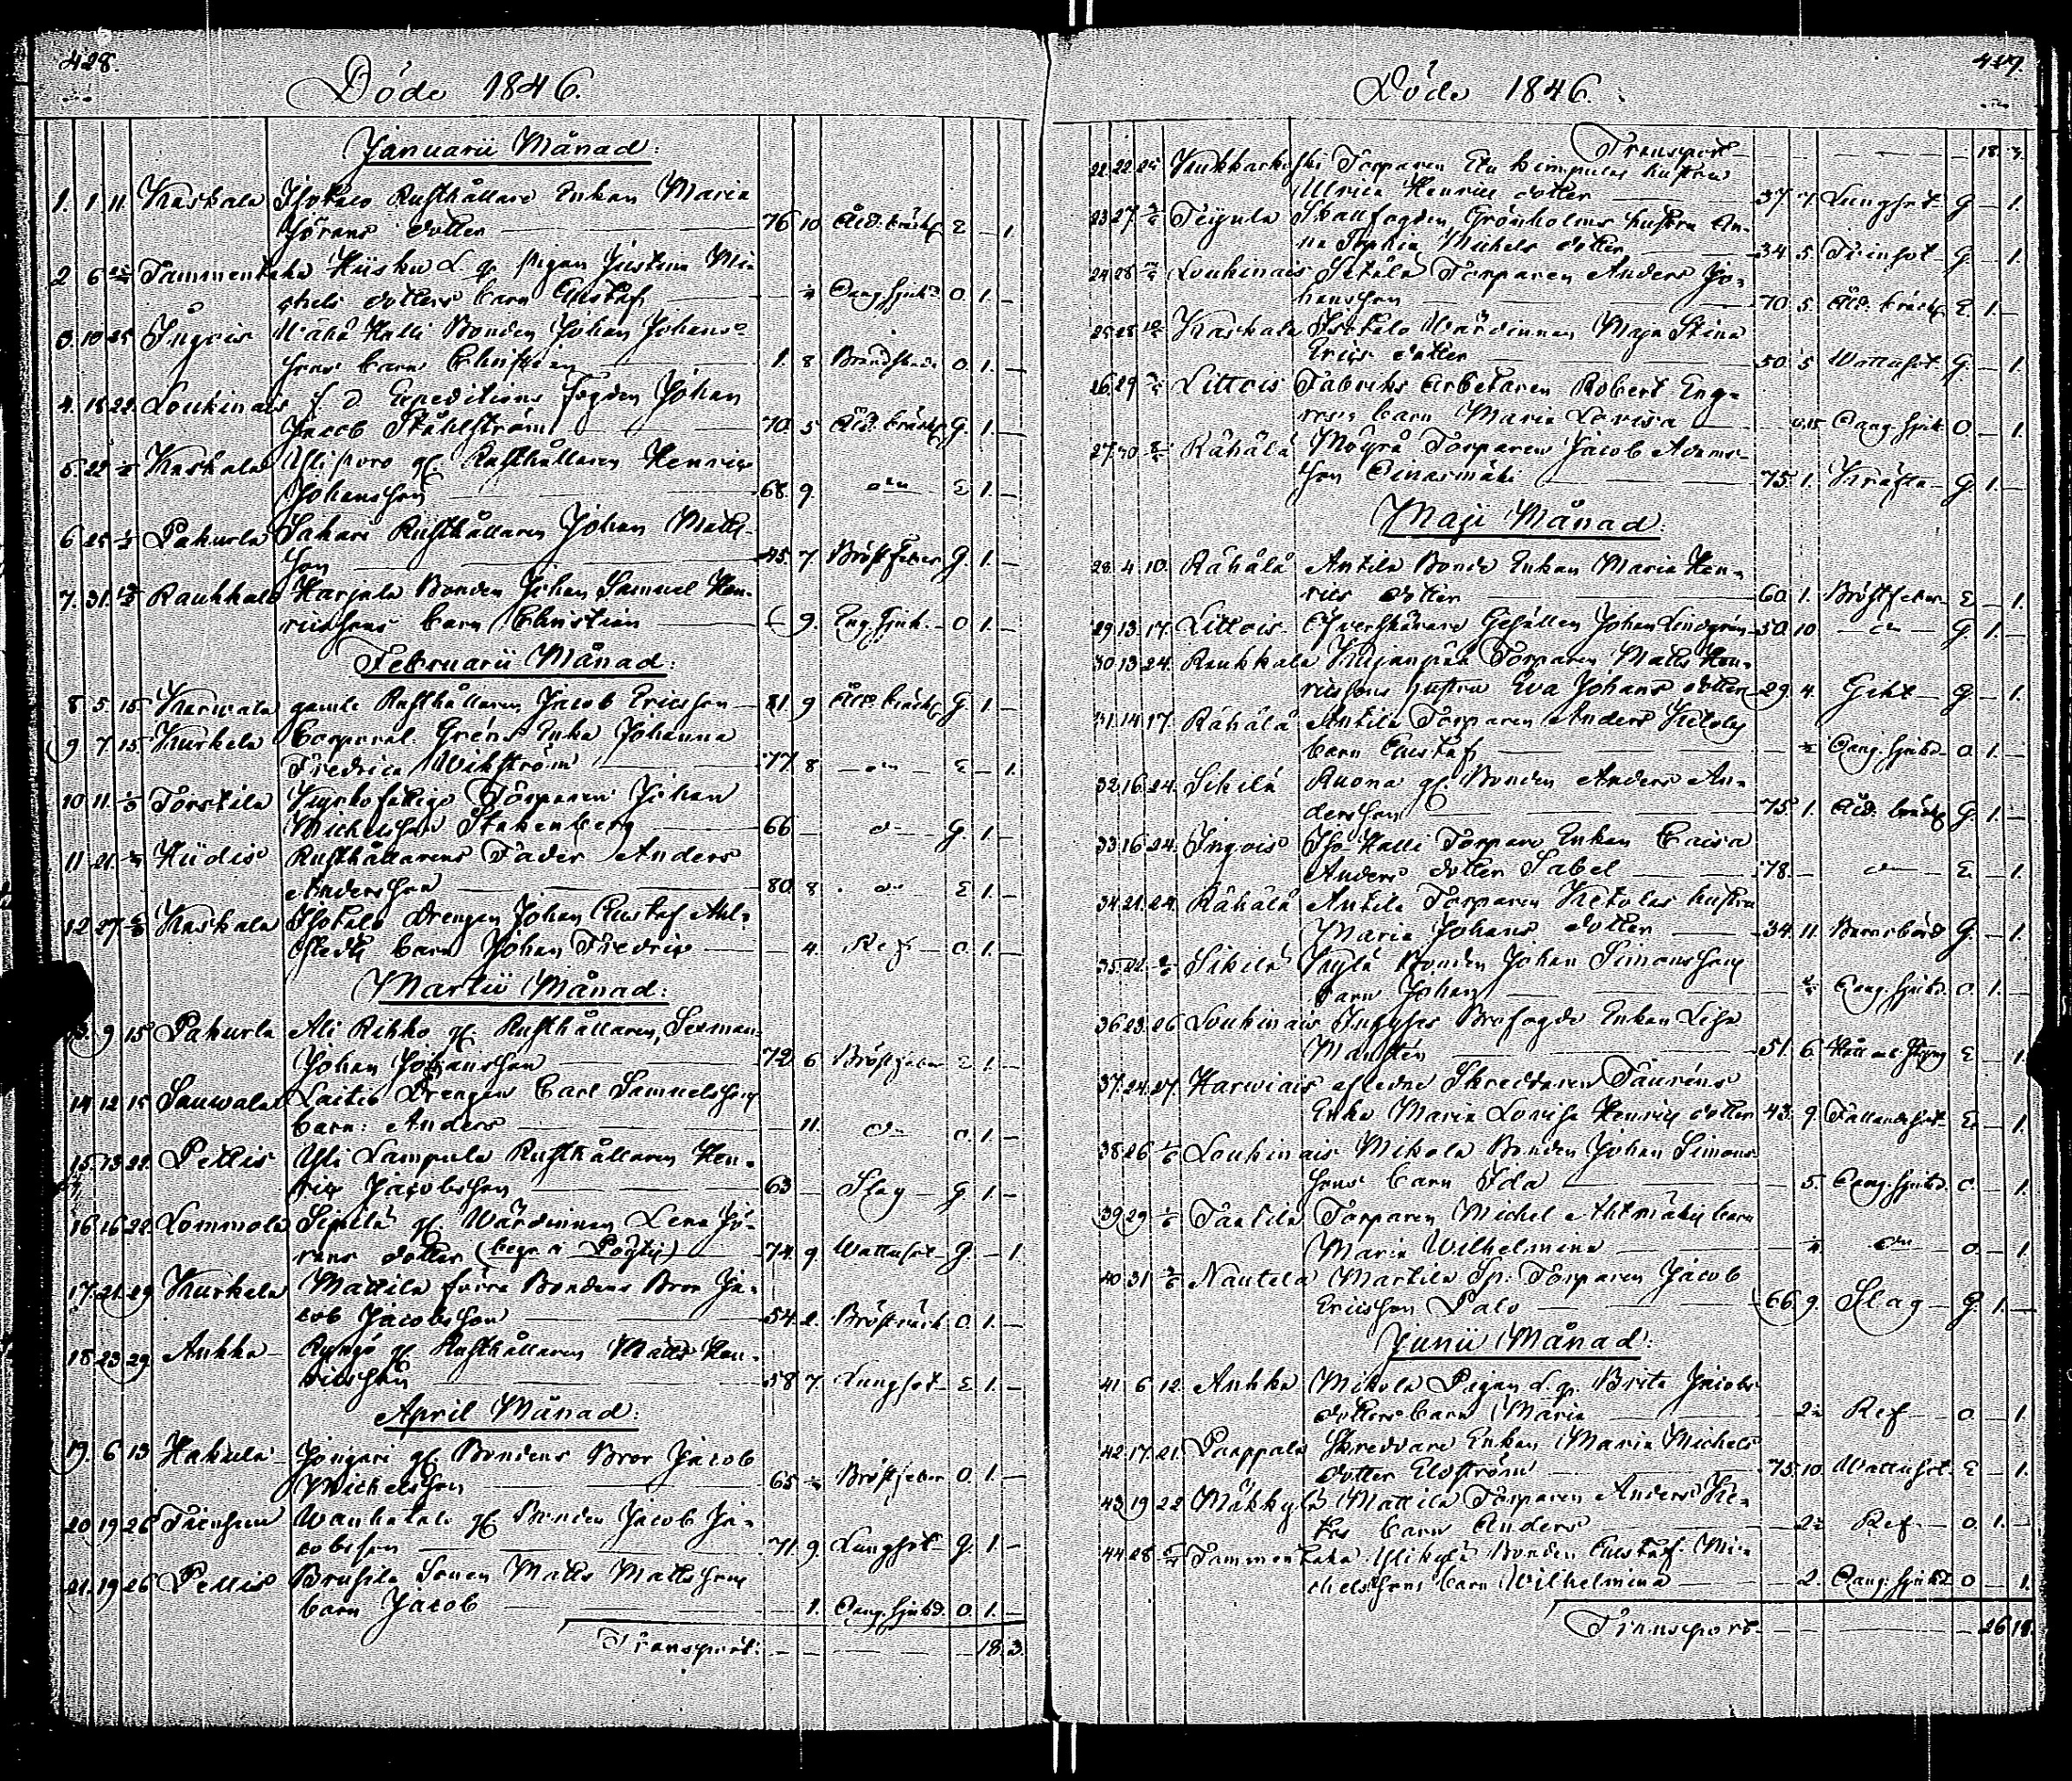 428.
Döde 1846.
Januarii Månad:
1. 1. 11. Kaskala Isotalo Rusthållare Enkan Maria
Jörans dotter — 76 10 Åld. bräckl E — 1.
2 6 Tammentaka Hiisku L. q. pigan Justina Mi-
chels dotters barn Gustaf — Oang. sjukd. O. 1. —
3. 10 25 Ingois Wähä Halli Bonden Johan Johans-
sons barn Christian — 1. 8 O. 1. —
4. 18 22. Loukinais f. d. Expeditions fogden Johan
Jacob Ståhlström — 70. 5 Åld. bräckl G. 1. —
5. 22 Kaskala Ylipuro gl. Rusthållaren Henric
Johansson — 68. 9. — E 1. —
6 25 Pahurla Sakari Rusthållaren Johan Matts-
son — 45. 7 Bröstfeber G. 1. —
7. 31. Raukkala Harjula Bonden Johan Samuel Hen-
ricssons barn Christian — 9. Eng. sjuk. — O 1. —
Februarii Månad:
8 5 15 Karwala gamle Rusthållaren Jacob Ericsson — 81. 9 Åld. bräckl G 1. —
9. 7 15 Kurkela Corporal Gréns Enka Johanna
Fredrica Wikström — 77 8 — E — 1.
10 11. Torstila Kyrkofattige Torparen Johan
Michelsson Stakenberg — 66 — G. 1. —
11 21. Hiidis Rusthållarens Fader Anders
Andersson — 80. 8 E 1. —
12 27 Kaskala Isotalo Drengen Johan Gustaf Ahl-
stedts barn Johan Fredric — 4. Ref — O. 1. —
Martii Månad:
9 15 Pahurla Ali Rikko gl. Rusthållaren, Sexman
Johan Johansson — 72 6 Bröstfeber E 1. —
14 12 15 Sauwala Laitis Drengen Carl Samuelssons
barn: Anders — 11. O. 1. —
15. 13 22. Pettis Yli Lampula Rusthållaren Hen-
ric Jacobsson — 63 — Slag — G 1. —
16 16 22. Lommola Sipilä gl. Wärdinnan Lena Jö-
rans dotter (begr. i Pöytis) — 74. 9 Wattusot — G. — 1.
17. 21. 29 Kurkela Mattila förra Bondens Bror Ja-
cob Jacobsson — 54. 2. Bröstvärk O. 1. —
18 23 29 Ankka — gl Rusthållaren Matts Hen-
ricsson — 58 7 Lungsot — E 1. —
April Månad:
19. 6 13 Hakula gl. Bondens Bror Jacob
Michelsson — 65 Bröstfeber O. 1. —
20 19 26 Wanhatalo gl Bonden Jacob Ja-
cobsson — 71. 9. Lungsot — G. 1. —
21. 19 26 Pettis Brusila Sonen Matts Mattssons
barn Jacob — 1. Oang. sjukd. O. 1. —
Transport: — 18. 3.
429.
Döde 1846.
Transport — 18. 3.
22. 22 Kuukkarkoski Torparen hustru
Ulrica Henrics dotter — 37 Lungsot — G — 1.
23 27 Teijula Skallfogden Grönholms hustru An-
na Sophia Michels dotter — 34 5. Tvinsot — G — 1.
24 28 Loukinais Setälä Torparen Anders Jo-
hansson — 70. 5 Åld. bräckl E 1. —
25 28 Kaskala Isotalo Wärdinnan Maja Stina
Erics dotter — 50 5 Wattusot G. — 1.
26. 29 Littois Fabriks Arbetaren Robert
barn Maria Lovisa — Oang. sjuk. O. — 1.
27. 30 Rähälä Torparen Jacob Adams-
son — 75. 1. Kräfta — G. 1. —
Maji Månad:
28. 4. 10. Rähälä Antila Bonde Enkan Maria Hen-
rics dotter — 60. 1. Bröstfeber — E — 1.
29 13. 17. Littois Gesällen Johan Lindgrén — 50 10 — G 1. —
30 13 24. Raukkala Kujanpää Torparen Matts Hen-
ricssons hustru Eva Johans dotter 29. 4. Gikt — G — 1.
31. 14 17. Rähälä Antila Torparen Anders Ketolas
barn Gustaf — Oang. sjukd. O. 1. —
32. 16. 24. Sikilä Ruona gl. Bonden Anders An-
dersson — 75. 1. Åld. bräckl G 1. —
33. 16 24. Ingois Iso Halli Torpare Enkan Caisa
Anders dotter Sabel — 78. — E — 1.
34 21. 24. Rähälä Antila Torparen Ketolas hustru
Maria Johans dotter — 34. 11. Barnsbörd G. — 1.
35. Sikilä Bonden Johan Simonssons
barn Johan — Oang. sjukd. O. 1. —
36 23. 26 Loukinais Brofogde Enkan Lisa
— 51. 6 Håll och Styng E — 1.
37. 24. 27. Harwiais afledne Skreddaren Tauréns
Enka Maria Lovisa Henrics dotter 43. 9. Fallandesot — E — 1.
38. 26 Loukinais Mikola Bonden Johan Simons-
sons barn Ida — 5. Oang. sjukd. O. — 1.
39 29 Tortila Torparen Michel Ahlmäkis barn
Maria Wilhelmina — O. — 1.
40 31 Nautela Martila Sp. Torparen Jacob
Ericsson Palo — 66. 9. Slag — G. 1. —
Junii Månad:
41. 6 12. Ankka Mikola Pigan L. q. Brita Jacobs
dotters barn Maria — Ref — O. — 1.
42. 17. 21. Paappala Skreddare Enkan Maria Michels
dotter Elfström — 75. 10. Wattusot — E — 1.
43. 19 22 Mäkkylä Mattila Torparen Anders
barn Anders — Ref. — O. 1. —
44. 28 Tammentaka Ylikylä Bonden Gustaf Mi-
chelssons barn Wilhelmina — 2. Oang. sjukd O — 1.
Transport — 26 18.